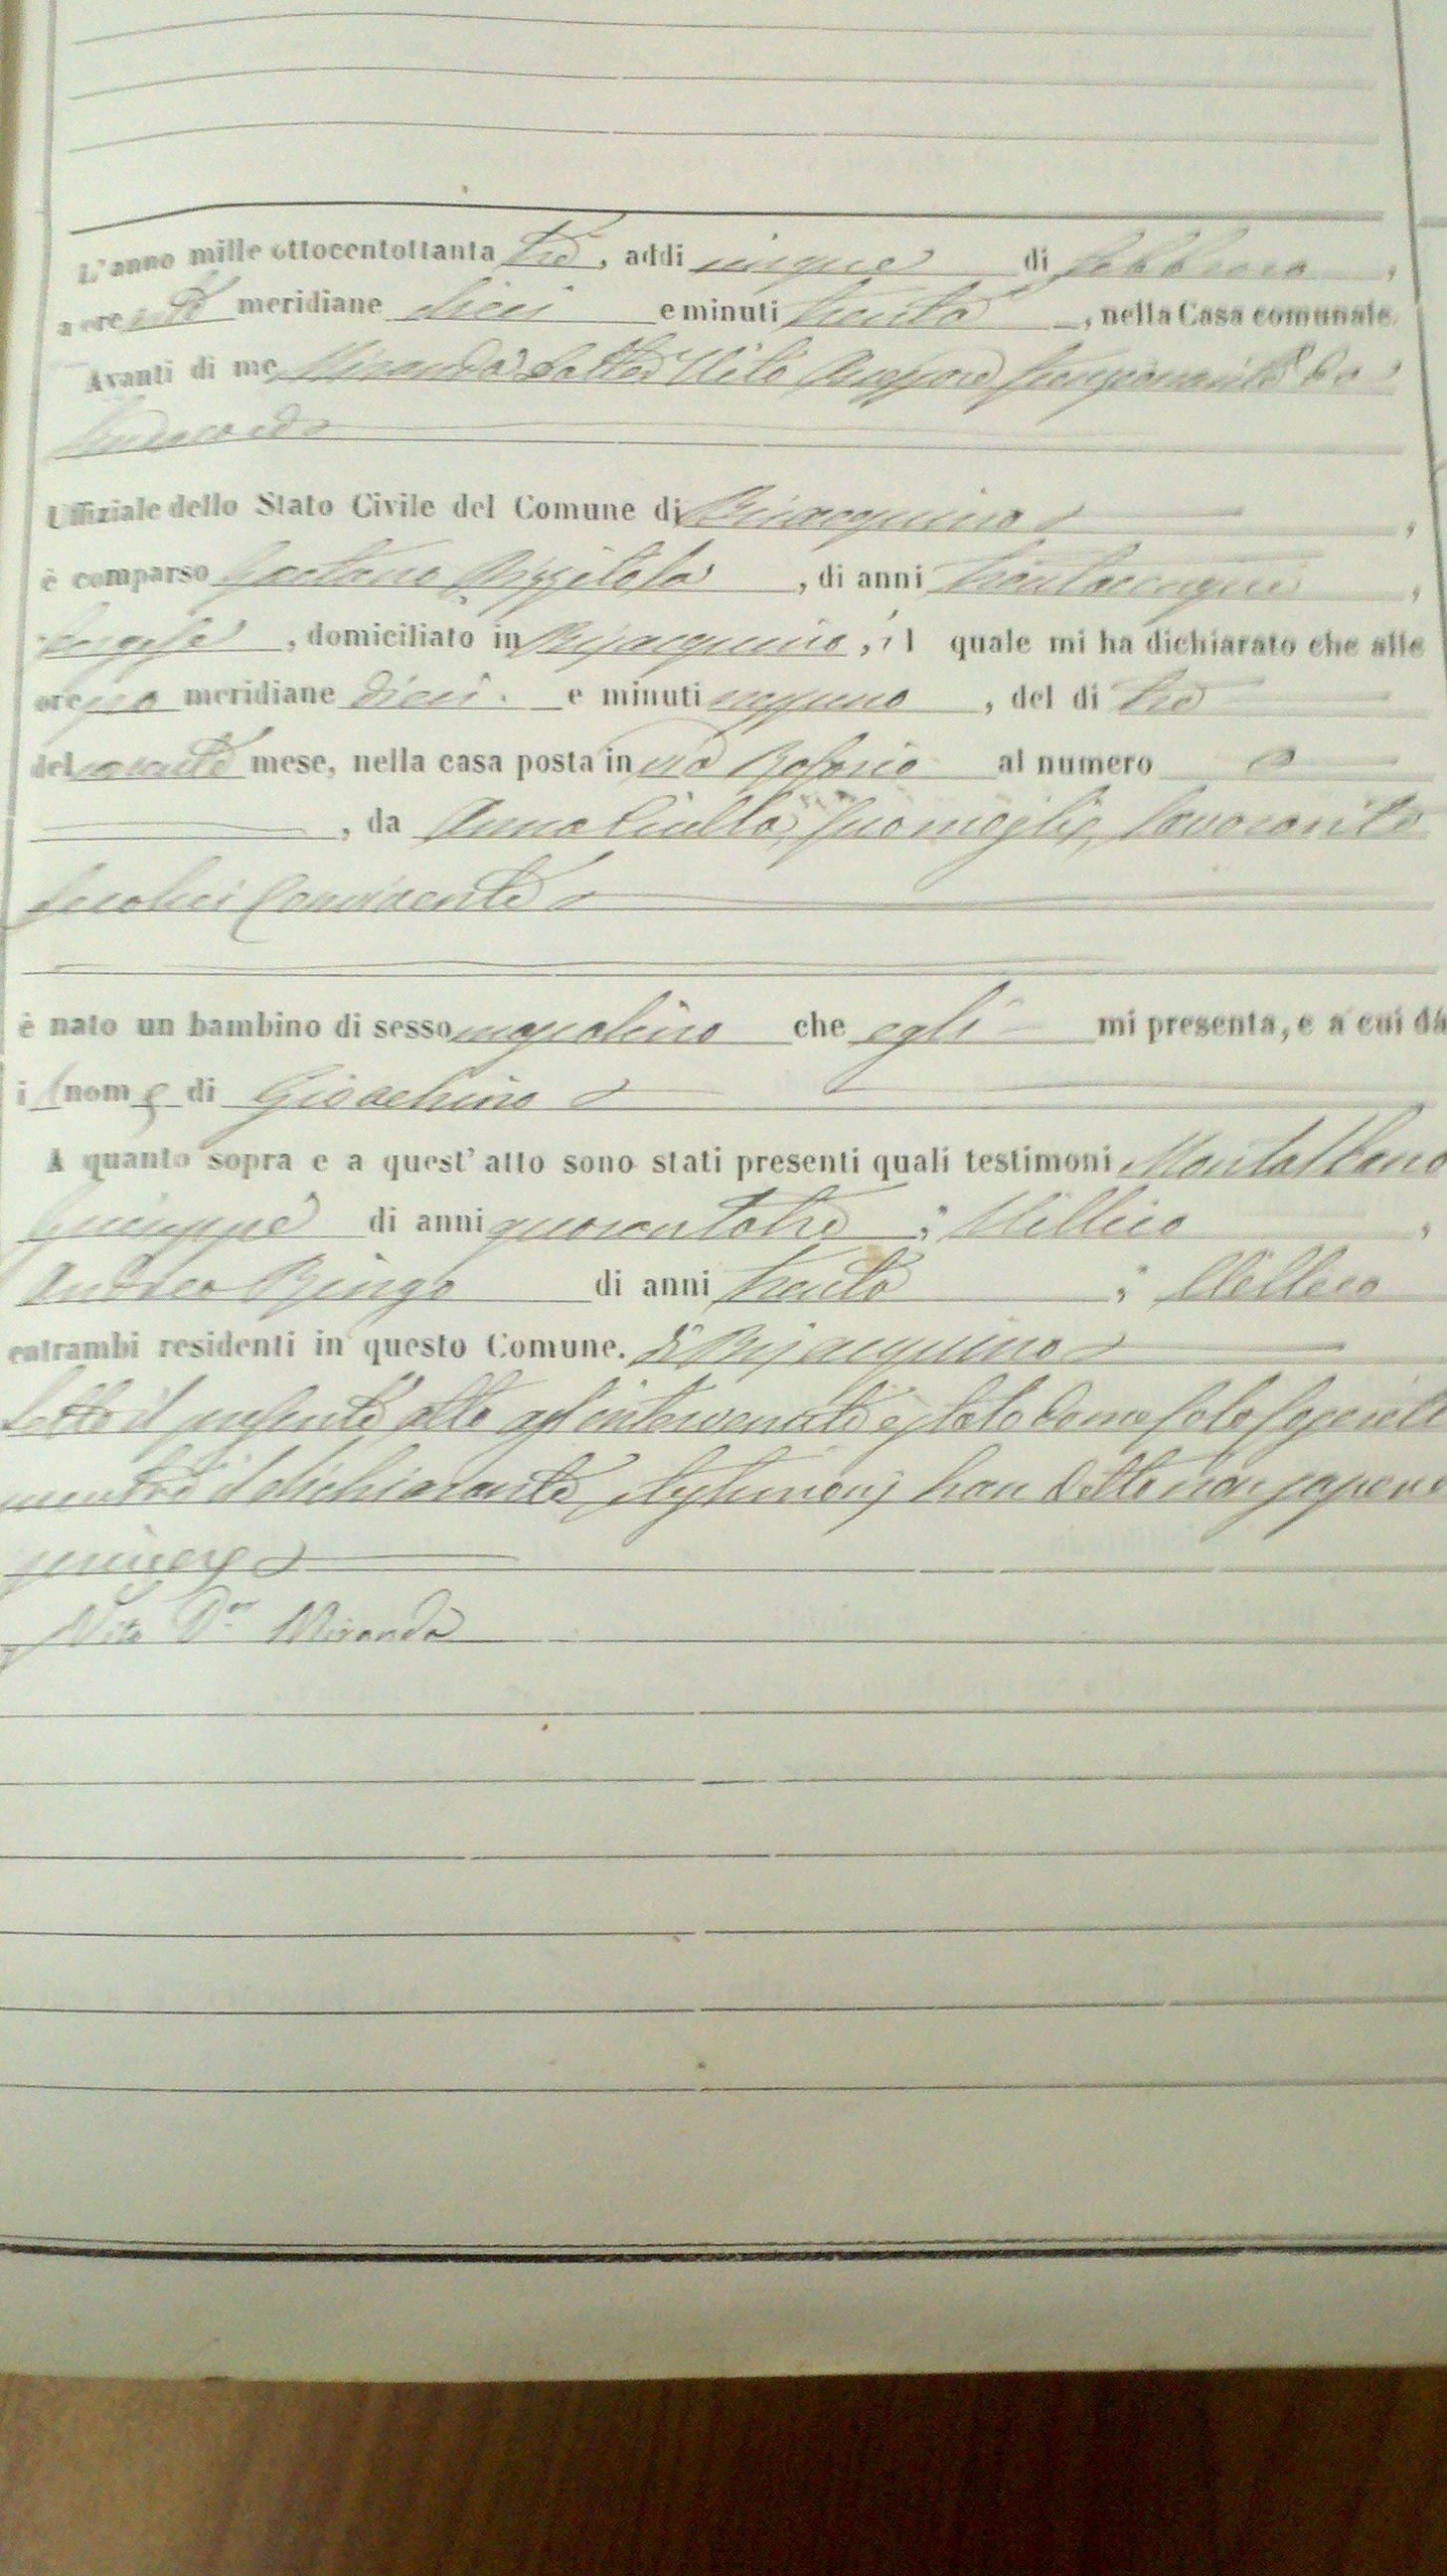 L'anno mille ottocentottanta tre, addi cinque di febbraro,
a ore anti meridiane dieci e minuti trenta, nella Casa comunale
Avanti di me Miranda Dottor Vito Assessore funzionante da
Sindaco ed
Uffiziale dello Stato Civile del Comune di Bisacquino,
è comparso Gaetano, di anni trentacinque,
, domiciliato in Bisacquino, il quale mi ha dichiarato che alle
ore meridiane dieci e minuti nessuno, del di tre
del corrente mese, nella casa posta in via Rosario al numero
, da Anna Ciulla, sua moglie,
seco lui convivente
è nato un bambino di sesso mascolino che egli mi presenta, e a cui dà
il nome di Gioachino
A quanto sopra e a quest'atto sono stati presenti quali testimoni Montalbano
Giuseppe di anni quarantatre, Villico,
Andrea di anni trenta, Villico
entrambi residenti in questo Comune. di Bisacquino
Letto il presente atto agl'intervenuti è stato da me solo
mentre il dichiarante, e testimonj han detto non sapere
scrivere
Vito Dr. Miranda